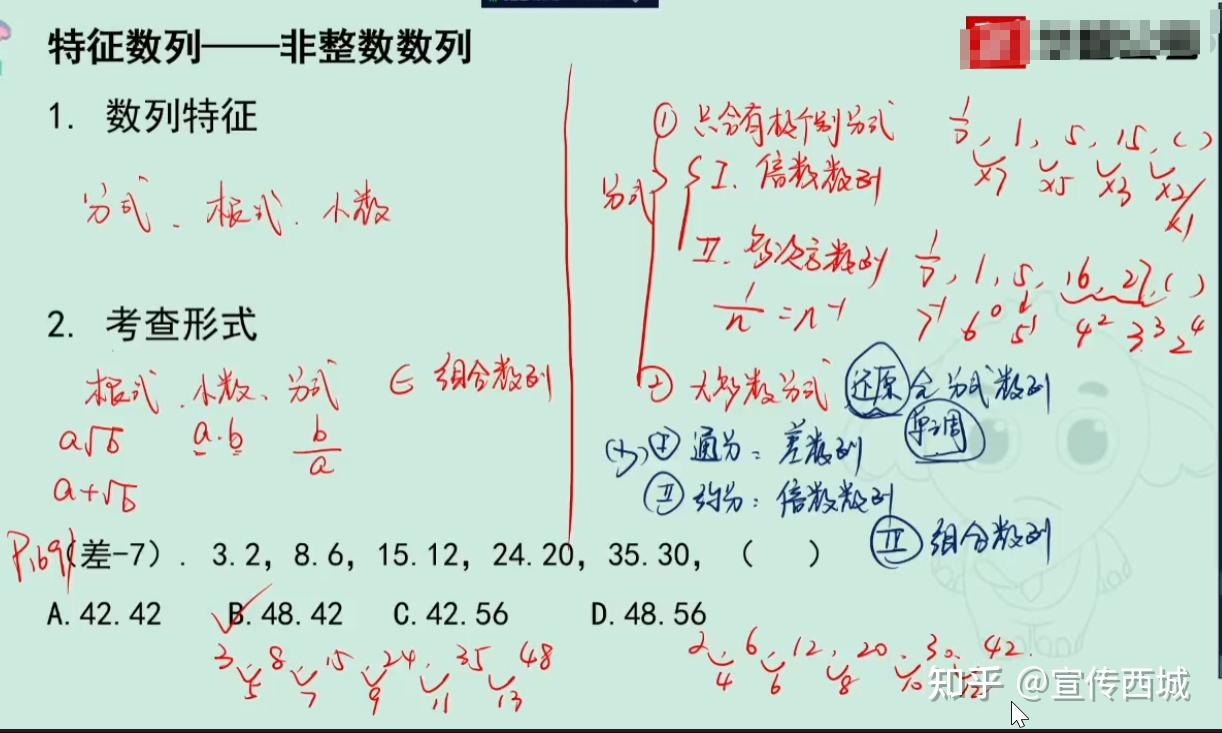 特征数列——非整数数列
1. 数列特征
分式、根式、小数
2. 考查形式
根式、小数、分式 ∈ 组合数列
a√b a.b b/a
a+√b
① 只含有极个别分式
分式
Ⅰ. 倍数数列
1/7, 1, 5, 15, ( )
×7 ×5 ×3 ×2/×1
Ⅱ. 多次方数列
1/7, 1, 5, 16, 27, ( )
1/n = n⁻¹
7⁻¹ 6⁰ 5¹ 4² 3³ 2⁴
② 大多数分式 还原 全分式数列
单调
Ⅰ 通分：差数列
Ⅱ 约分：倍数数列
Ⅲ 组合数列
P169
(差-7). 3.2, 8.6, 15.12, 24.20, 35.30, ( )
A.42.42 B.48.42 C.42.56 D.48.56
3 8 15 24 35 48
5 7 9 11 13
2, 6, 12, 20, 30, 42
4 6 8 10
知乎 @宣传西城